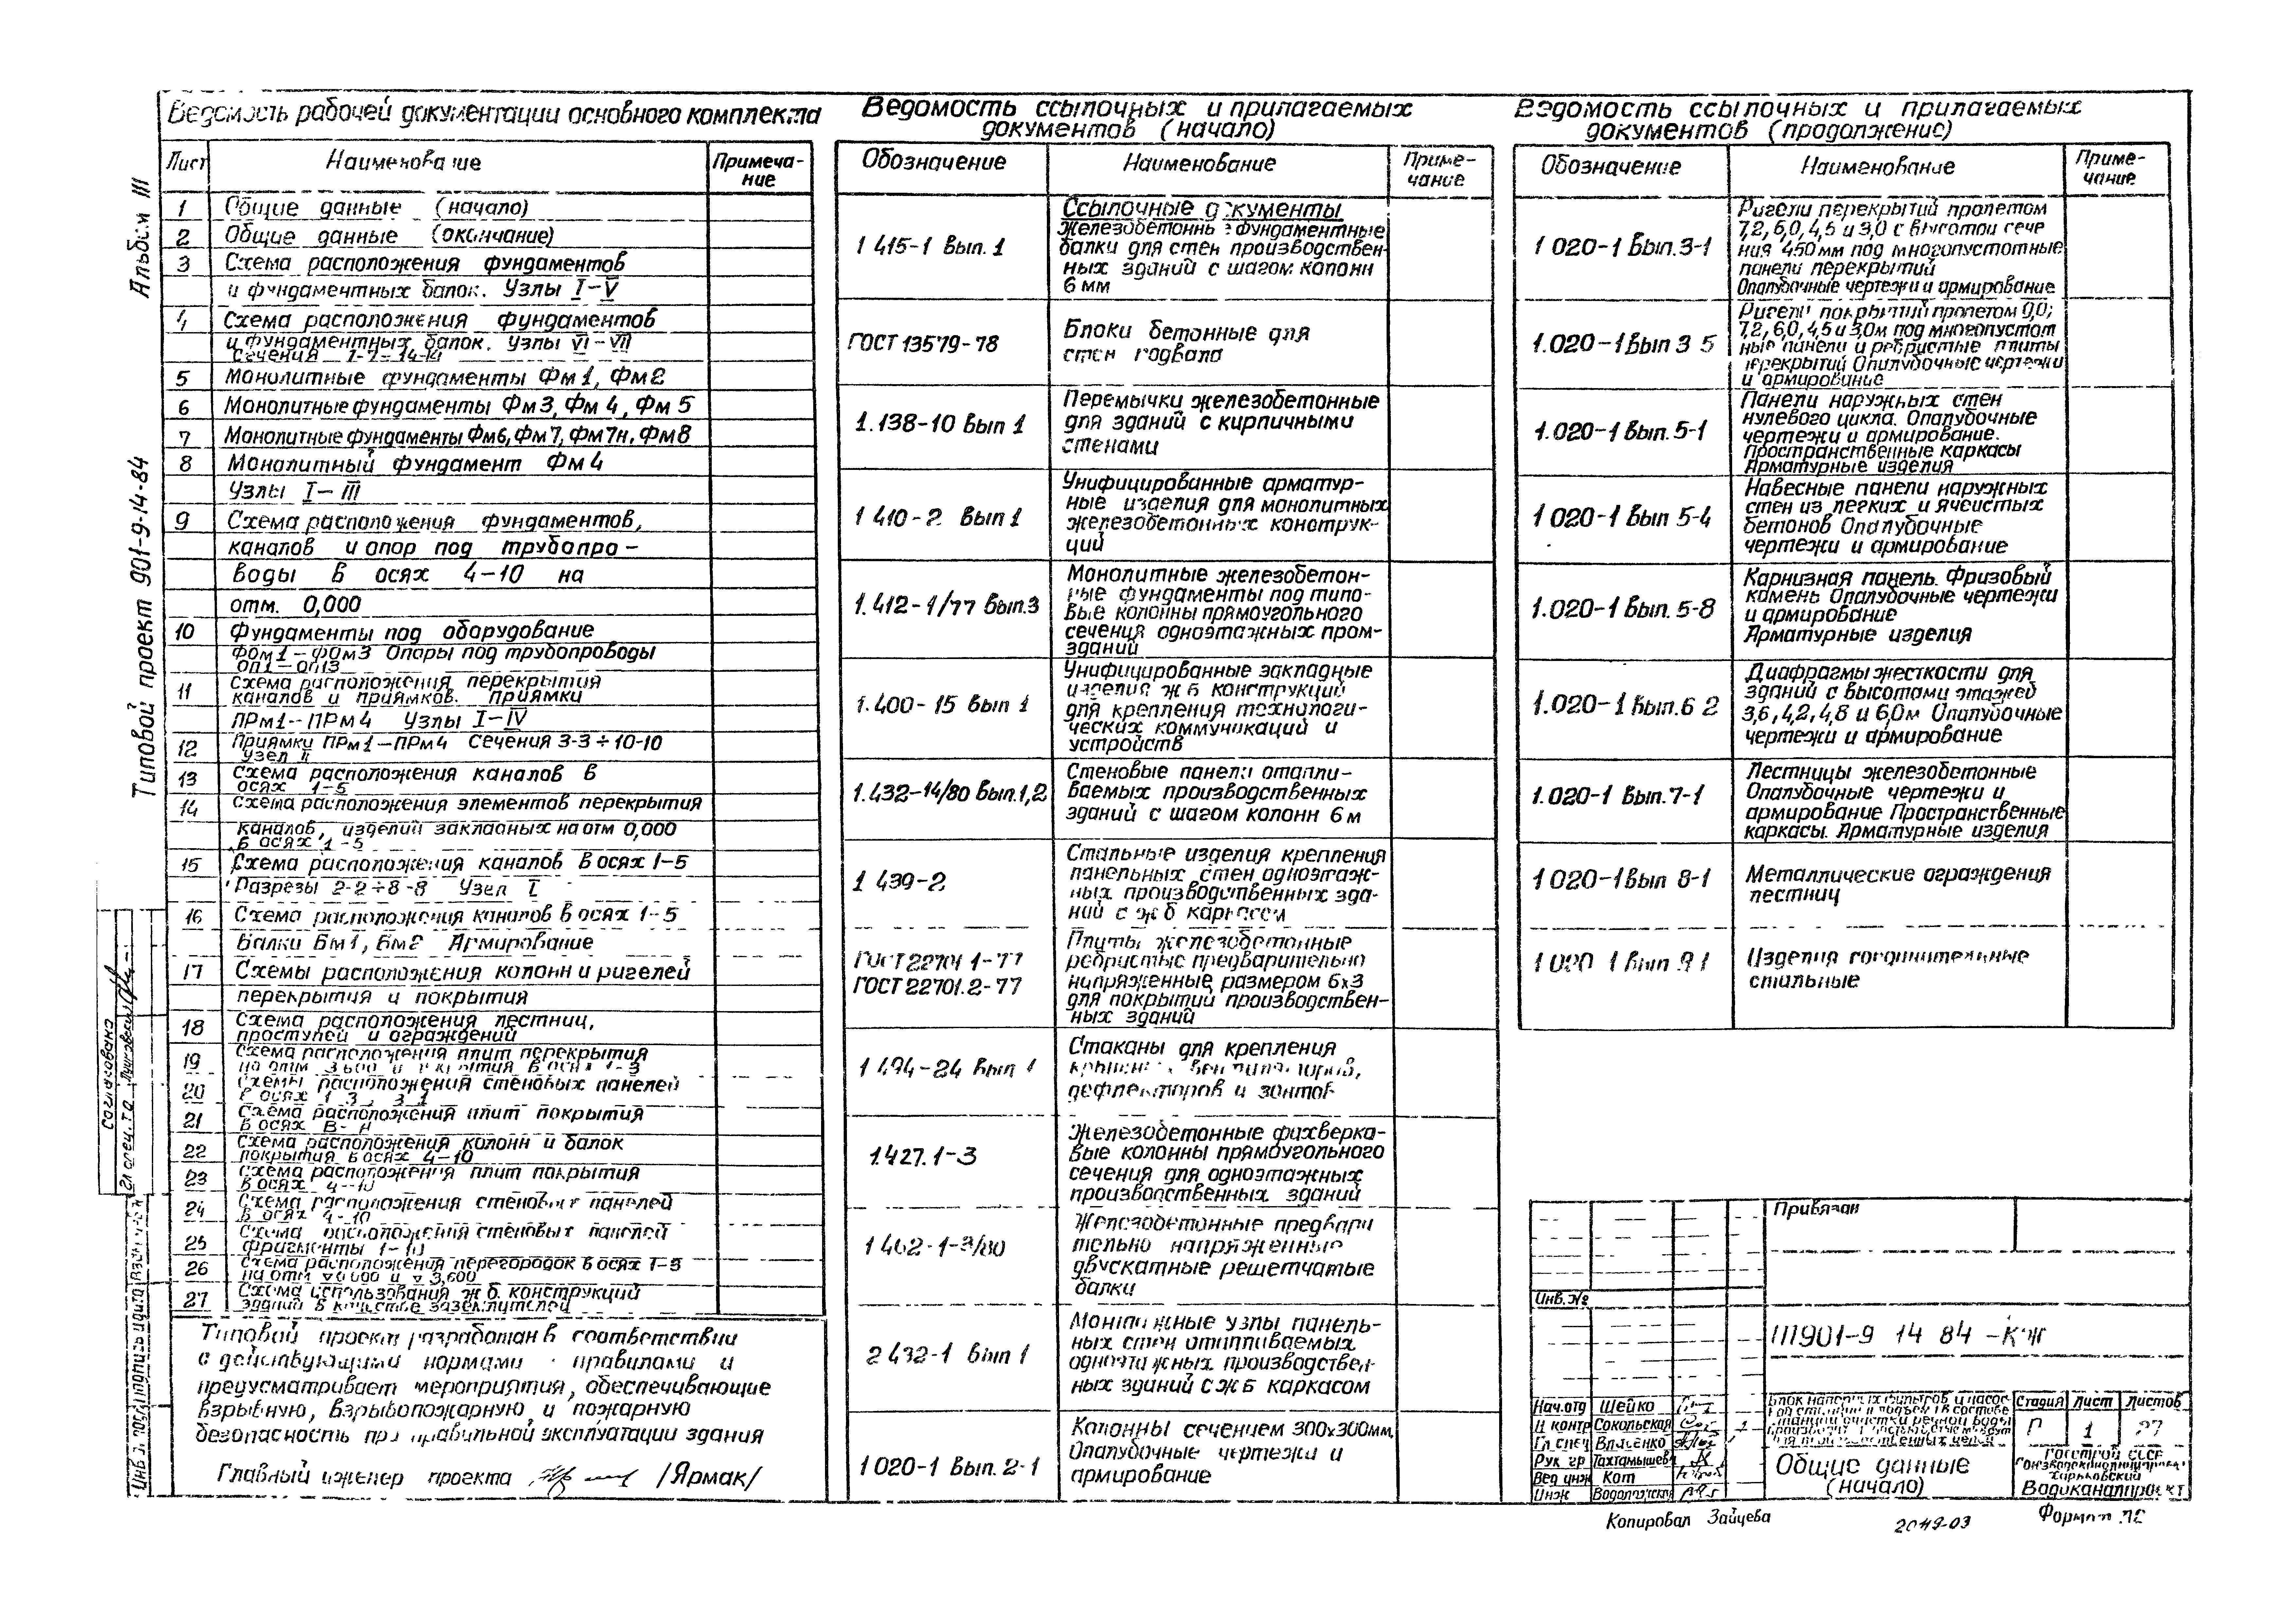 Типовой проект 901-9-14-84 Альбом III
Ведомость рабочей документации основного комплекта
Лист Наименование Примеча-
ние
1 Общие данные (начало)
2 Общие данные (окончание)
3 Схема расположения фундаментов
и фундаментных балок. Узлы I-V
4 Схема расположения фундаментов
и фундаментных балок. Узлы VI-VII
Сечения 1-1-14-14
5 Монолитные фундаменты Фм1, Фм2
6 Монолитные фундаменты Фм3, Фм4, Фм5
7 Монолитные фундаменты Фм6, Фм7, Фм7н, Фм8
8 Монолитный фундамент Фм4
Узлы I-III
9 Схема расположения фундаментов,
каналов и опор под трубопро-
воды в осях 4-10 на
отм. 0,000
10 Фундаменты под оборудование
Фом1-Фом3 Опоры под трубопроводы
оп1-оп13
11 Схема расположения перекрытия
каналов и приямков. Приямки
ПРм1-ПРм4 Узлы I-IV
12 Приямки ПРм1-ПРм4 Сечения 3-3÷10-10
Узел II
13 Схема расположения каналов в
осях 1-5
14 Схема расположения элементов перекрытия
каналов, изделий закладных на отм 0,000
в осях 1-5
15 Схема расположения каналов в осях 1-5
Разрезы 2-2÷8-8 Узел I
16 Схема расположения каналов в осях 1-5
Балки Бм1, Бм2 Армирование
17 Схемы расположения колонн и ригелей
перекрытия и покрытия
18 Схема расположения лестниц,
проступей и ограждений
19 Схема расположения плит перекрытия
на отм 3,600 и покрытия в осях 1-3
20 Схемы расположения стеновых панелей
в осях 1-3, 3-1
21 Схема расположения плит покрытия
в осях
22 Схема расположения колонн и балок
покрытия в осях 4-10
23 Схема расположения плит покрытия
в осях 4-10
24 Схема расположения стеновых панелей
в осях 4-10
25 Схема расположения стеновых панелей
Фрагменты 1-10
26 Схема расположения перегородок в осях 1-3
на отм 0.000 и 3,600
27 Схема использования ж.б. конструкций
зданий в качестве заземлителей
Типовой проект разработан в соответствии
с действующими нормами и правилами и
предусматривает мероприятия, обеспечивающие
взрывную, взрывопожарную и пожарную
безопасность при правильной эксплуатации здания
Главный инженер проекта /Ярмак/
Ведомость ссылочных и прилагаемых
документов (начало)
Обозначение Наименование Приме-
чание
Ссылочные документы
1 415-1 Вып. 1 Железобетонные фундаментные
балки для стен производствен-
ных зданий с шагом колонн
6 мм
ГОСТ 13579-78 Блоки бетонные для
стен подвала
1.138-10 Вып 1 Перемычки железобетонные
для зданий с кирпичными
стенами
1 410-2 Вып 1 Унифицированные арматур-
ные изделия для монолитных
железобетонных конструк-
ций
1.412-1/77 Вып.3 Монолитные железобетон-
ные фундаменты под типо-
вые колонны прямоугольного
сечения одноэтажных пром-
зданий
1.400-15 Вып 1 Унифицированные закладные
изделия ж б конструкций
для крепления технологи-
ческих коммуникаций и
устройств
1.432-14/80 Вып.1,2 Стеновые панели отапли-
ваемых производственных
зданий с шагом колонн 6 м
1 439-2 Стальные изделия крепления
панельных стен одноэтаж-
ных производственных зда-
ний с ж б каркасом
ГОСТ 22701 1-77
ГОСТ 22701.2-77 Плиты железобетонные
ребристые предварительно
напряженные размером 6х3
для покрытий производствен-
ных зданий
1 494-24 Вып 1 Стаканы для крепления
крышных вентиляторов,
дефлекторов и зонтов
1.427.1-3 Железобетонные фахверко-
вые колонны прямоугольного
сечения для одноэтажных
производственных зданий
1 462-1-3/80 Железобетонные предвари
тельно напряженные
двускатные решетчатые
балки
2 432-1 Вып 1 Монтажные узлы панель-
ных стен отапливаемых
одноэтажных производствен-
ных зданий с Ж Б каркасом
1 020-1 Вып. 2-1 Колонны сечением 300х300мм.
Опалубочные чертежи и
армирование
Ведомость ссылочных и прилагаемых
документов (продолжение)
Обозначение Наименование Приме-
чание
1 020-1 Вып.3-1 Ригели перекрытий пролетом
7,2, 6,0, 4,5 и 3,0 с высотой сече
ния 450мм под многопустотные
панели перекрытий
Опалубочные чертежи и армирование
1.020-1 Вып 3 5 Ригели покрытий пролетом 9,0;
7,2, 6,0, 4,5 и 3,0м под многопустот
ные панели и ребристые плиты
перекрытий Опалубочные чертежи
и армирование
1.020-1 Вып. 5-1 Панели наружных стен
нулевого цикла. Опалубочные
чертежи и армирование.
Пространственные каркасы
Арматурные изделия
1 020-1 Вып 5-4 Навесные панели наружных
стен из легких и ячеистых
бетонов Опалубочные
чертежи и армирование
1.020-1 Вып. 5-8 Карнизная панель. Фризовый
камень Опалубочные чертежи
и армирование
Арматурные изделия
1.020-1 Вып.6 2 Диафрагмы жесткости для
зданий с высотами этажей
3,6, 4,2, 4,8 и 6,0м Опалубочные
чертежи и армирование
1.020-1 Вып.7-1 Лестницы железобетонные
Опалубочные чертежи и
армирование Пространственные
каркасы. Арматурные изделия
1 020-1 Вып 8-1 Металлические ограждения
лестниц
1 020 1 Вып 9 1 Изделия соединительные
стальные
Привязан
Инв. №
ТП901-9 14 84 -КЖ
Нач.отд Шейко
Н контр Сокольская
Гл.спец Власенко
Рук гр Тахтамышева
Вед инж Кот
Инж Водолажская
Блок напорных фильтров и насос
Стадия Лист Листов
Р 1 27
Общие данные
(начало)
Госстрой СССР
Харьковский
Водоканалпроект
Копировал Зайцева
Формат
Согласовано
Гл спец. ТО